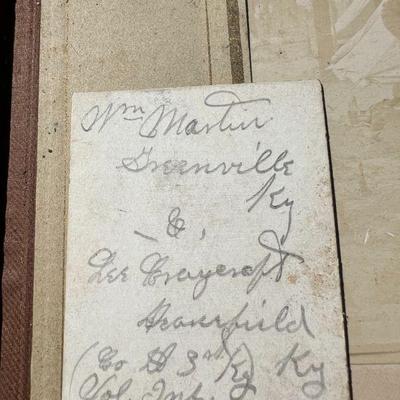 Wm Martin
Greenville
Ky
- & -
Lee Craycroft
Deanefield
Ky
(Co H 3rd Ky)
Vol. Inf.